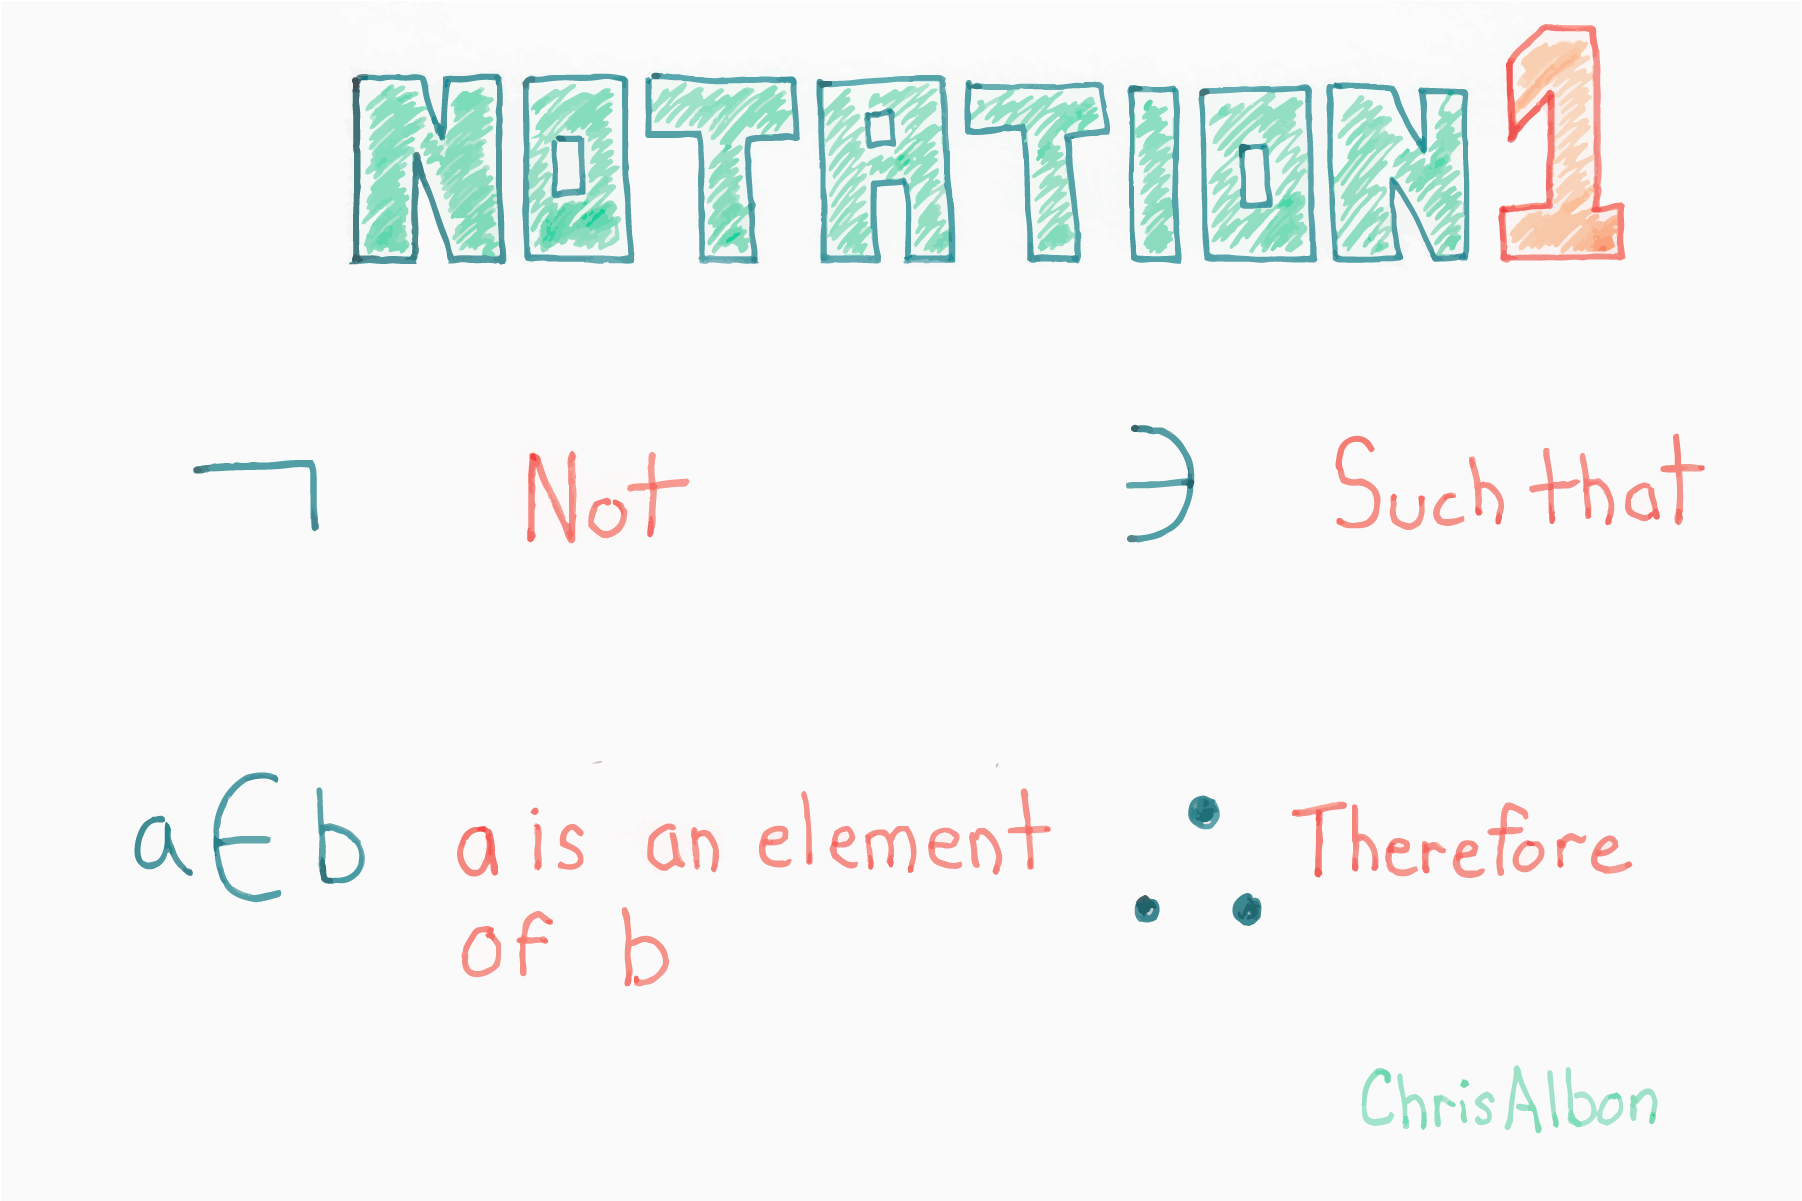 NOTATION 1
¬ Not
∋ Such that
a∈b a is an element
of b
∴ Therefore
ChrisAlbon